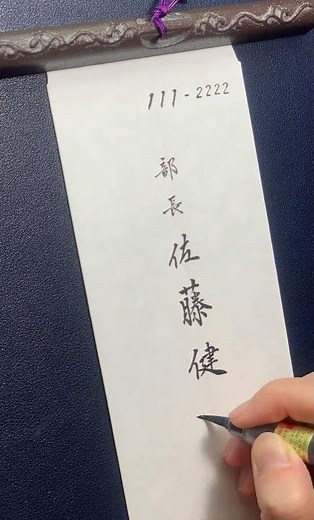 111-2222
部長 佐藤健